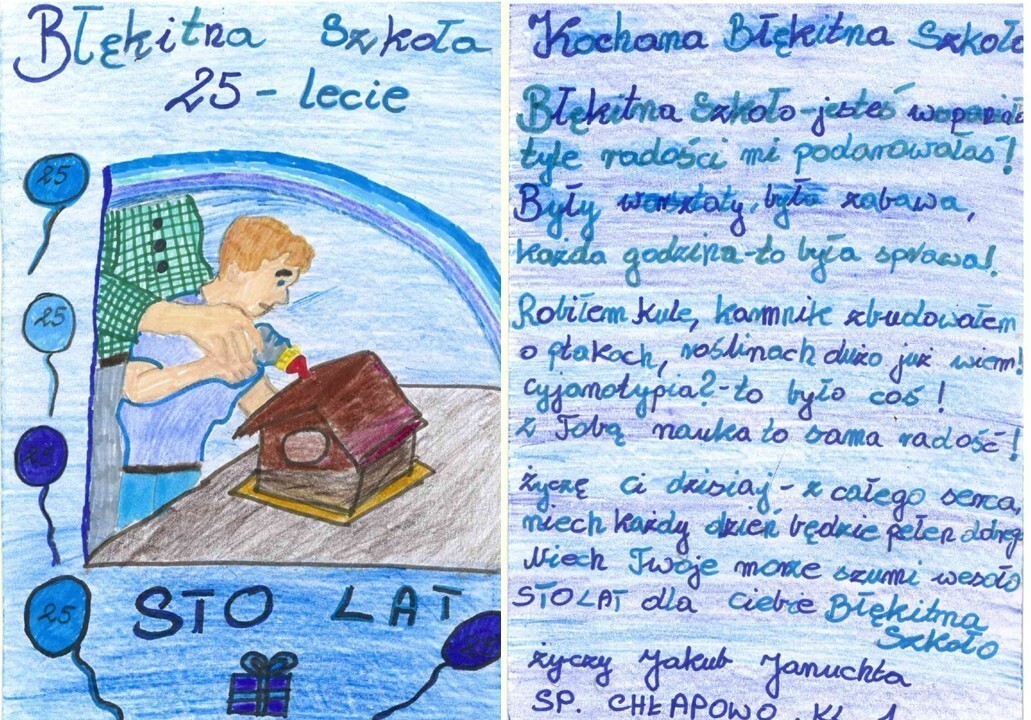 Błękitna Szkoła
25-lecie
25
25
25
25
STO LAT
Kochana Błękitna Szkoło
Błękitna Szkoło-jesteś
tyle radości mi podarowałaś!
Były warsztaty, była zabawa,
każda godzina-to była sprawa!
Robiłem kule, karmnik zbudowałem
o ptakach, roślinach dużo już wiem!
cyjanotypia?-to było coś!
z Tobą nauka to sama radość!
życzę Ci dzisiaj - z całego serca,
niech każdy dzień będzie pełen
Niech Twoje morze szumi wesoło
STO LAT dla ciebie Błękitna
Szkoło
życzy Jakub Januchta
SP. CHŁAPOWO KL. 1